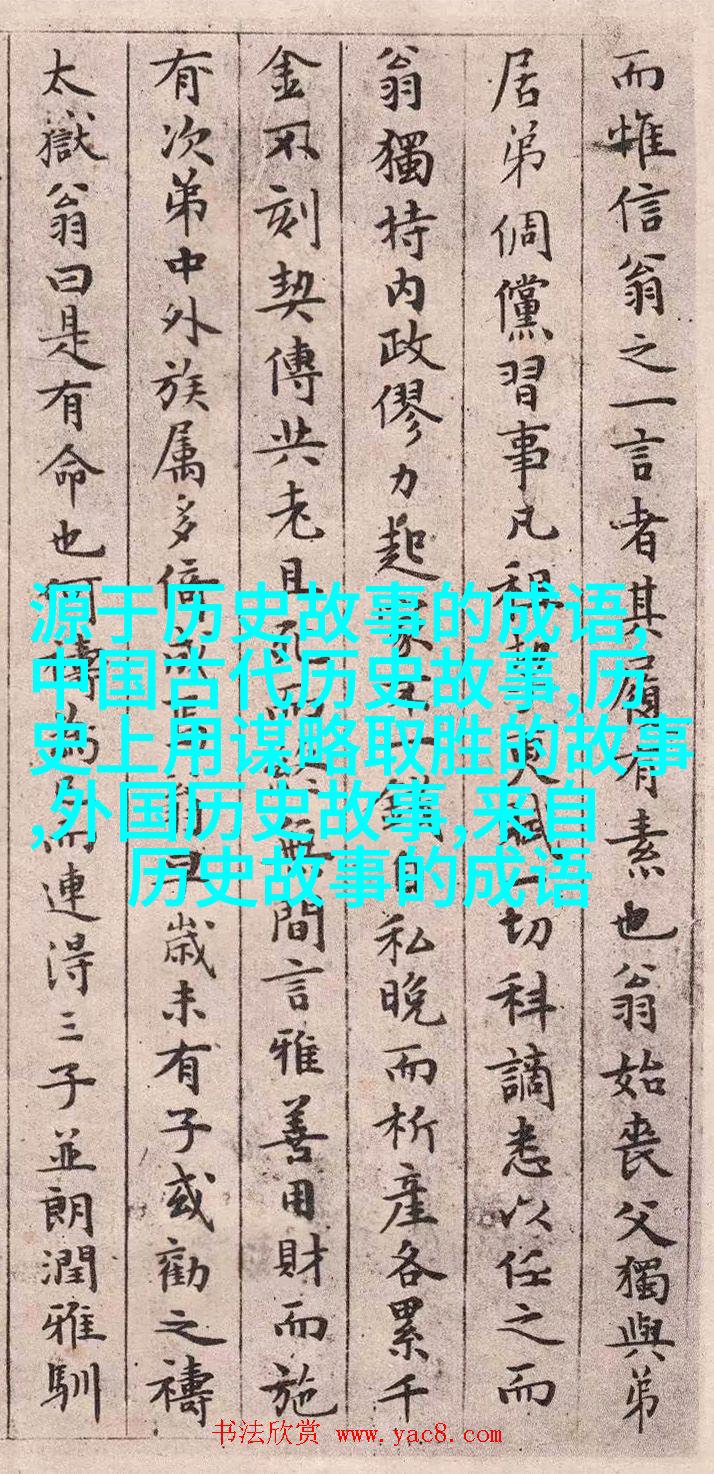 而惟信翁之一言者其履有素也翁始喪父獨與弟
居弟倜儻習事凡租 切科謫悉以任之而
翁獨持内政僇力起家 自私晚而析產各累千
金不刻契傳共老且 間言雅善用財而施
有次第中外族属多倚 歲未有子或勸之禱
太嶽翁曰是有命也何禱為 而連得三子並朗潤雅馴
源于历史故事的成语,
中国古代历史故事,历
史上用谋略取胜的故事
,外国历史故事,来自
历史故事的成语
书法欣赏 www.yac8.com